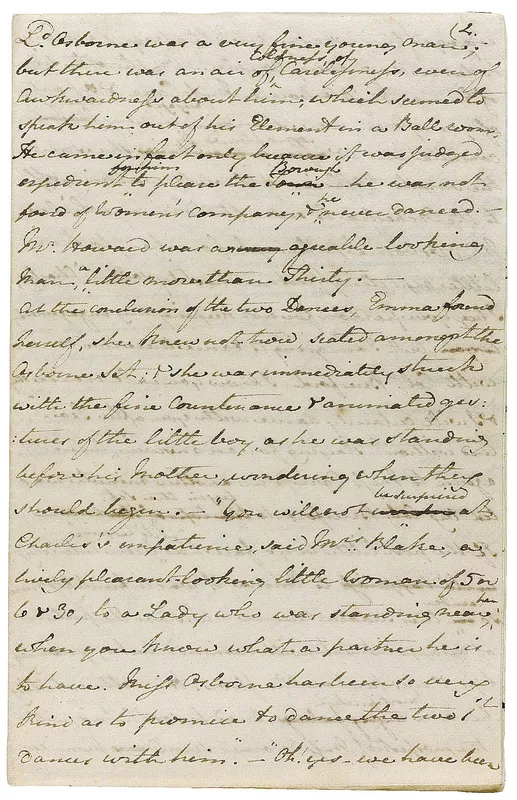 (2.
Ld. Osborne was a very fine young man;
but there was an air of Coldness, of Carelessness, even of
Awkwardness about him, which seemed to
speak him out of his Element in a Ball room.
He came in fact only because it was judged
expedient for him to please the Borough – he was not
fond of Women's company, & he never danced. –
Mr. Howard was an agreable-looking
Man, a little more than Thirty. –
At the conclusion of the two Dances, Emma found
herself, she knew not how, seated amongst the
Osborne Set; & she was immediately struck
with the fine Countenance & animated ges:
:tures of the little boy, as he was standing
before his Mother, wondering when they
should begin. – "You will not be surprised at
Charles's impatience, said Mrs. Blake, a
lively pleasant-looking little Woman of 5 or
6 & 30, to a Lady who was standing near her,
when you know what a partner he is
to have. Miss Osborne has been so very
kind as to promise to dance the two 1st
Dances with him." – "Oh! yes – we have been